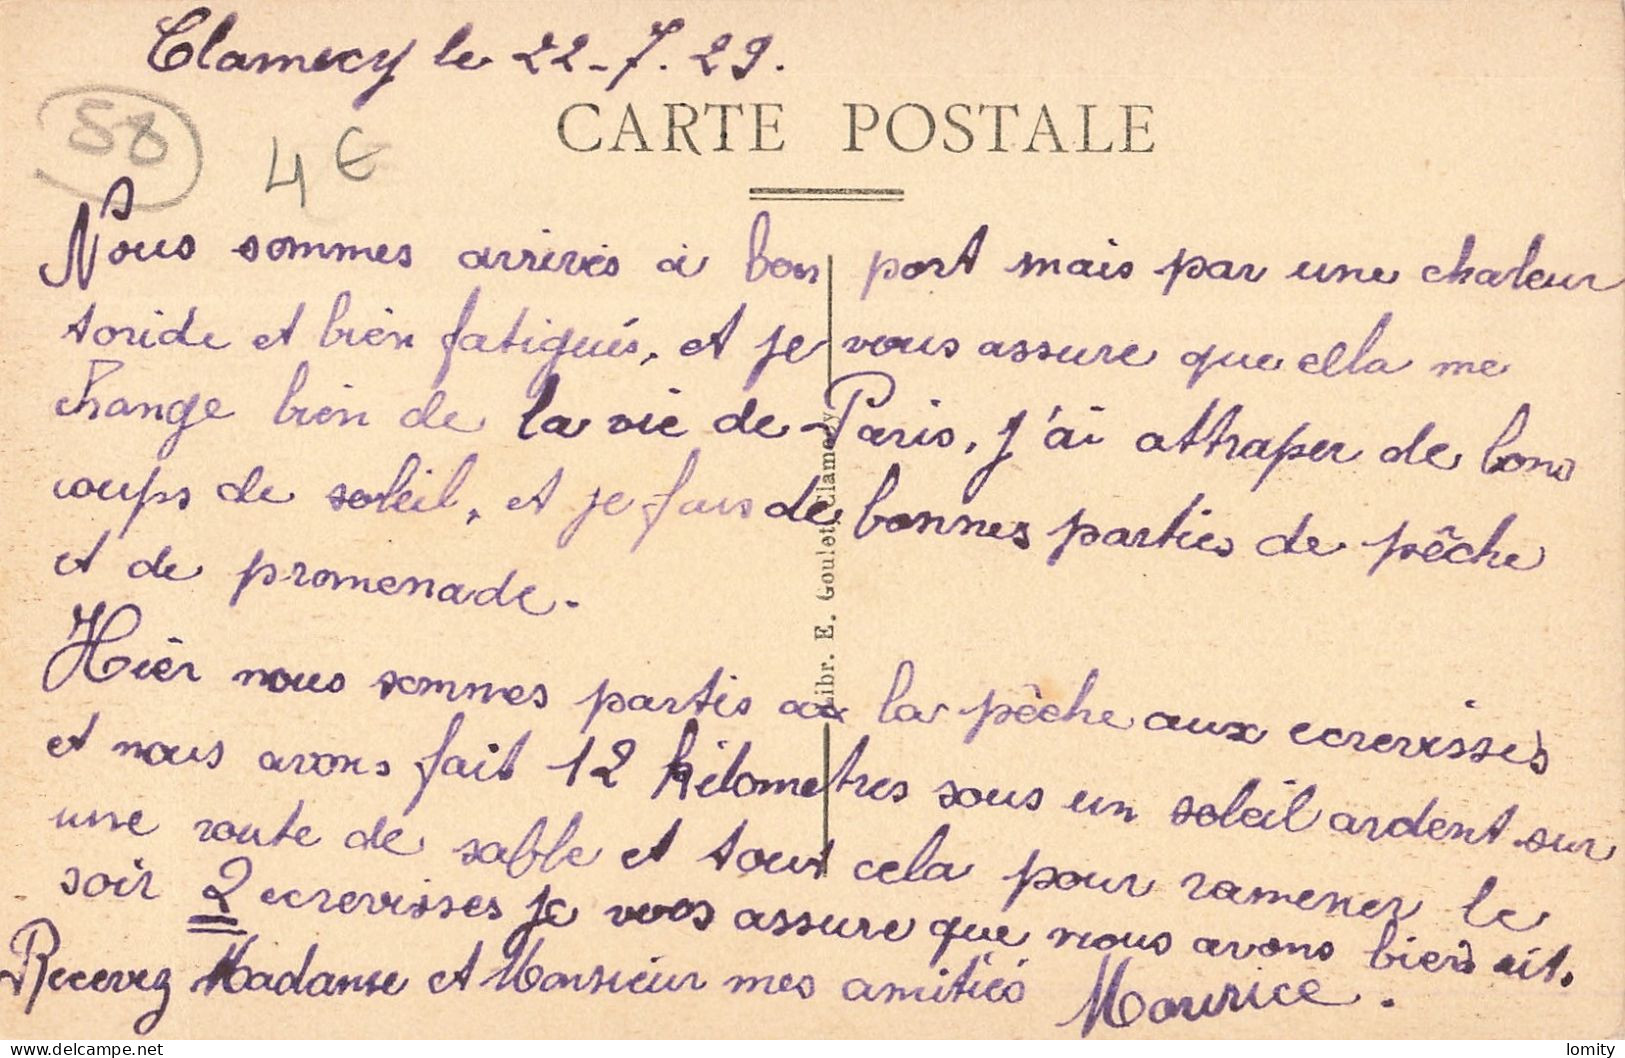 Clamecy le 22-7.29.
58
4€
CARTE POSTALE
Nous sommes arrivés à bon port mais par une chaleur
toride et bièn fatigués, et je vous assure que ella me
change bien de la vie de Paris, j'ai attraper de bons
coups de soleil, et je fais de bonnes parties de pêche
et de promenade.
Hièr nous sommes partis à la pêche aux ecrevisses
et nous avons fait 12 kilometres sous un soleil ardent sur
une route de sable et tout cela pour ramener le
soir 2 ecrevisses je vous assure que nous avons bien
Recevez Madame et Monsieur mes amitiés Maurice.
Libr. E. Goulet, Clamecy
www.delcampe.net
lomity